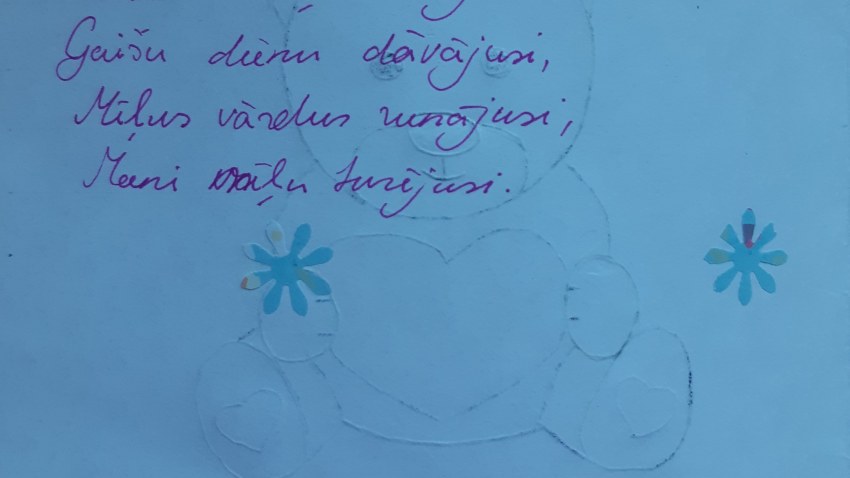 Gaišu dienu dāvājusi,
Mīļus vārdus runājusi,
Mani māļu turējusi.